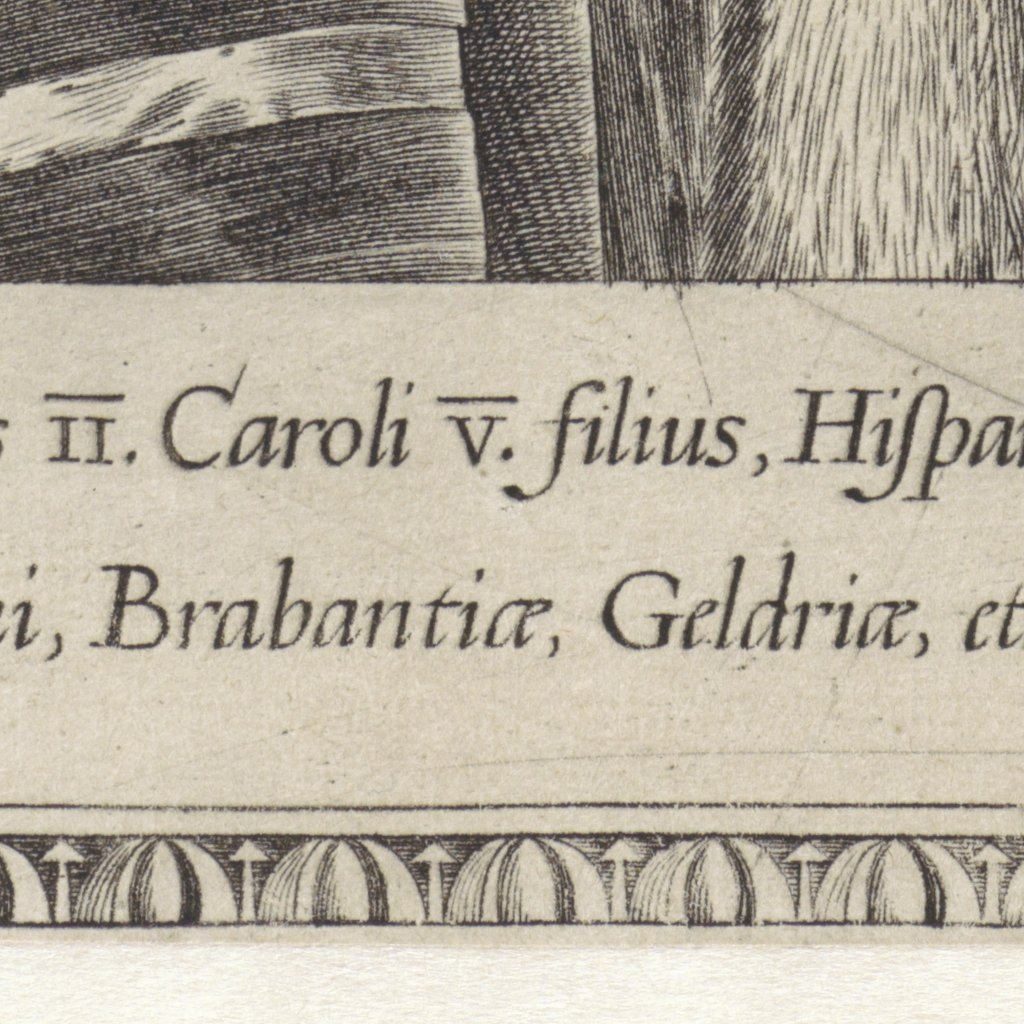 II. Caroli V. filius, Hiſpa
i, Brabantiæ, Geldriæ, et